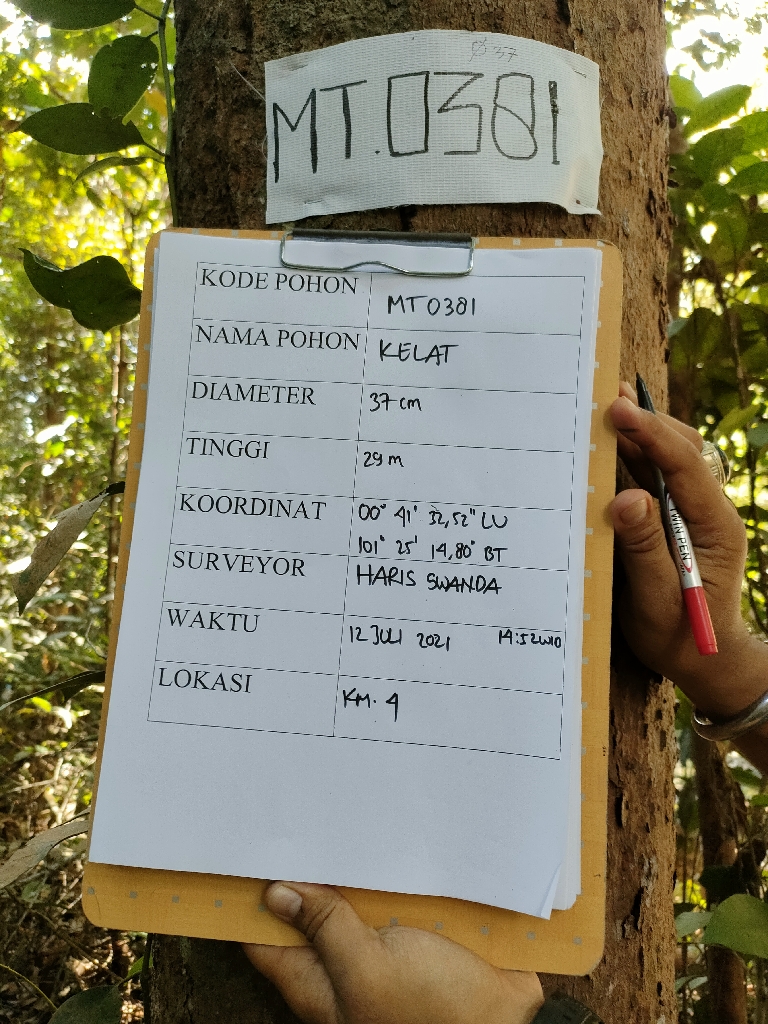 Ø 37
MT.0381
KODE POHON MT0381
NAMA POHON KELAT
DIAMETER 37 cm
TINGGI 29 m
KOORDINAT 00° 41' 32,52" LU
101° 25' 14,80" BT
SURVEYOR HARIS SWANDA
WAKTU 12 JULI 2021 14:52 WIB
LOKASI KM. 4
TWIN PEN